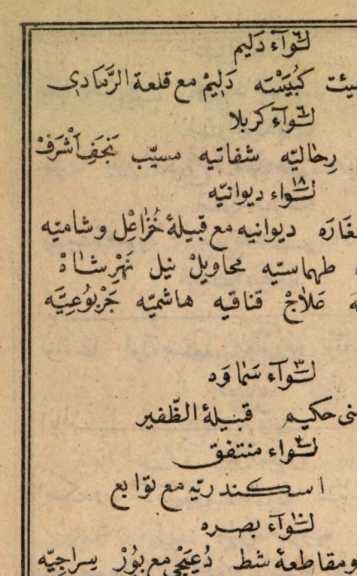 ٦ لوآء دَليم
هيئت كُبَيْسَه دَليمْ مع قلعة الرَّمادى
٦ لوآء كربلا
رحّاليّه شفاتيه مسيّب نَجَفِ اَشْرَفْ
١٨ لوآء ديوانيّه
ديوانيه مع قبيلهٔ خُزَاعِل و شاميّه
طهماسيّه محاويلْ نيل نَهْرِ شاهْ
علاجْ قناقيه هاشميّه جَرْبُوعيَّه
٣ لوآء سَمَاوَه
بنى حكيم قبيلهٔ الظّفير
لوآء منتفق
اسكندريّه مع توابع
١٠ لوآء بصره
ومقاطعهٔ شط دُعَيْجى مع يُوزْ سراجيّه